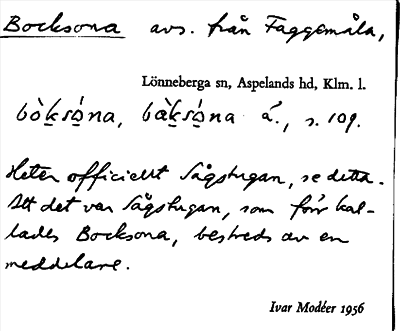 Bocksona avs. från Faggemåla,
Lönneberga sn, Aspelands hd, Klm. l.
bòk̲só̲na, bàk̲só̲na á., s. 109.
Heter officiellt Sågstugan, se detta.
Att det var Sågstugan, som förr kal-
lades Bocksona, bestreds av en
meddelare.
Ivar Modéer 1956